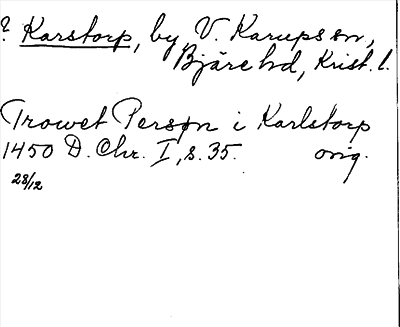 ? Karstorp, by V. Karups sn,
Bjäre hd, Krist. l.
Trowet Person i Karlstorp
1450 D. Chr. I, s. 35. orig.
28/12